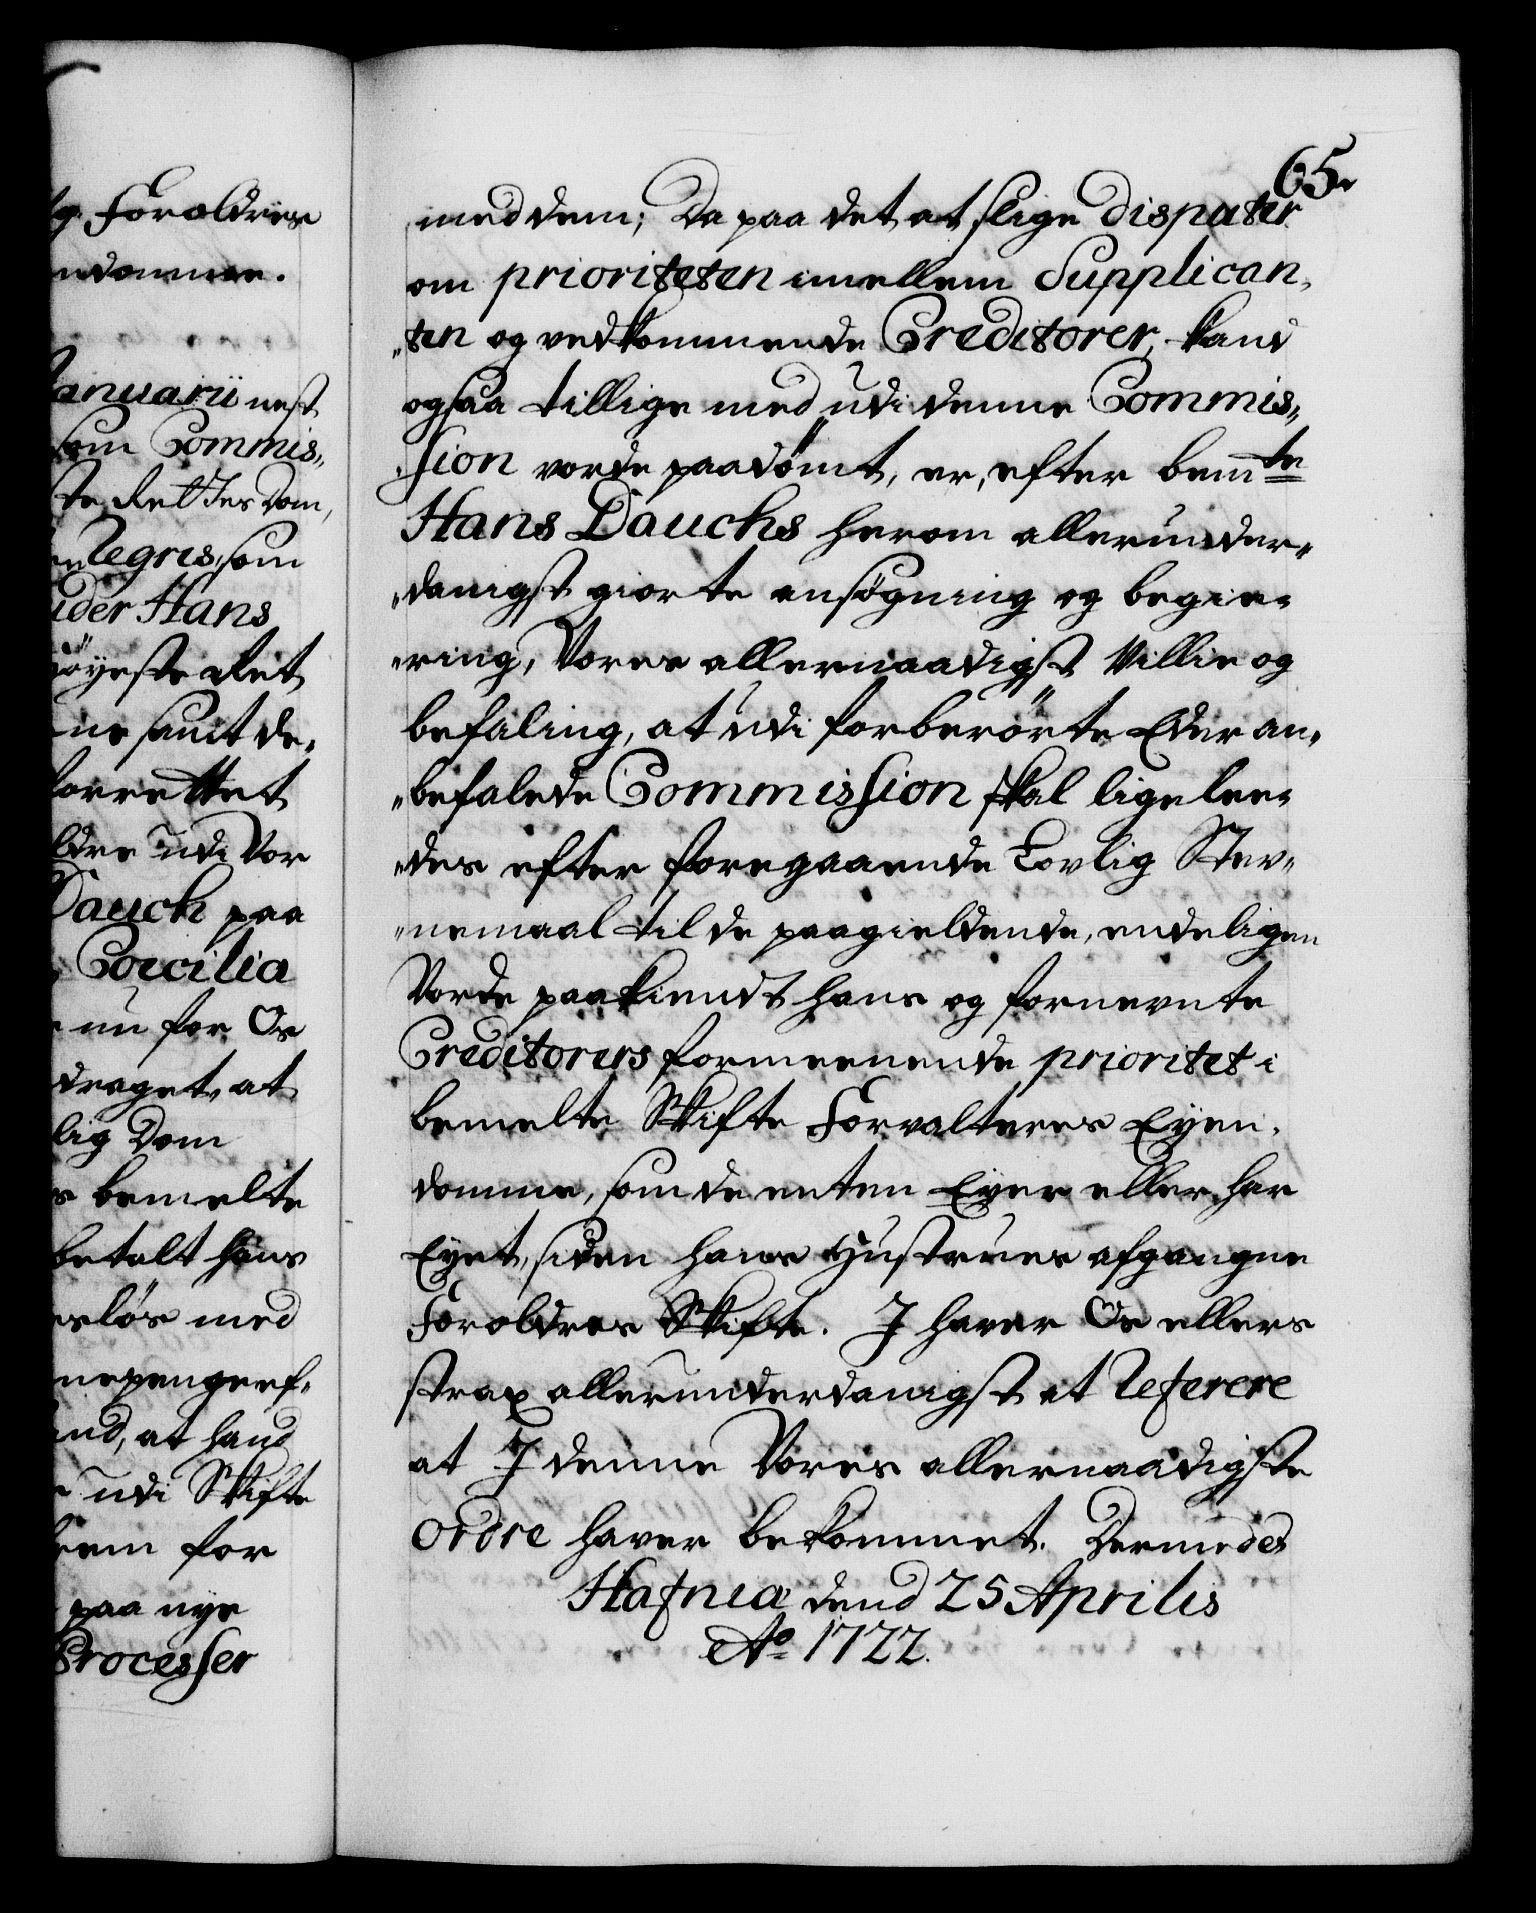 g. Forældres
ndomme.
Januarii nest
som Commis„
ste Rettes Dom,
en Negris, som
uder Hans
höyeste Ret
ne samt de„
forrettet
ldre udi Vor
Dauch paa
Coecilia
nu for Os
draget, at
lig Dom
s bemelte
betalt hans
eslös med
nepenge ef„
and, at hand
udi Skifte
dem for
paa nye
Processer
65.
med dem; Da paa det at slige disputer
om prioriteten imellem Supplican„
„ten og vedkommende Creditorer, kand
ogsaa tillige med udi denne Commis„
„sion vorde paadömt, er, efter bemte
Hans Dauchs herom allerunder„
„danigst giorte ansøgning og begie„
„ring, Vores allernaadigst Villie og
befaling, at udi forberörte Eder an„
„befalede Commission skal ligelee„
„des efter foregaaende Lovlig Stev„
„nemaal til de paagieldende, endeligen
Vorde paakiendt hans og fornevnte
Creditorers formeenende prioritet i
bemelte Skifte Forvalteres Eyen„
domme, som de enten Eyer eller har
Eyet, siden hans Hustrues afgangne
Forældres Skifte. I haver Os ellers
strax allerunderdanigst at referere
at I denne Vores allernaadigste
Ordre haver bekommet. Dermed etc
Hafnia dend 25 Aprilis
Ao 1722.